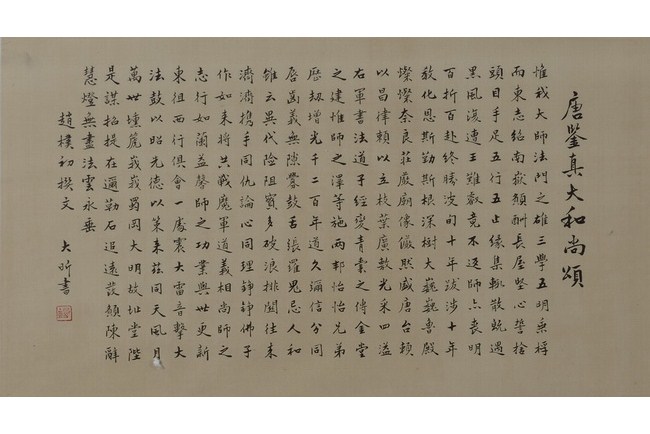 唐鑒真大和尚頌
惟我大師法門之雄三學五明乘桴
而東志紹南嶽願酬長屋堅心誓捨
頭目手足五行五止緣集輒散遇
黑風復遭王難叡竟不返師亦喪明
百折百赴終勝波旬十年跋涉十年
教化恩斯勤斯根深樹大巍巍魯殿
燦燦奈良莊嚴廟像儼然盛唐台賴
以昌律賴以立枝葉廣敷光采四溢
右軍書法道子經變青囊之傳金堂
之建惟師之澤等施兩邦怡怡兄弟
歷劫增光千二百年道久彌信分同
唇齒義無隙釁鼓舌張羅鬼忌人和
雖云異代險阻實多破浪排闥往來
濟濟攜手同仇論心同理錚錚佛子
作如來將共戰魔軍道義相尚師之
志行如蘭益馨師之功業與世更新
東徂西行俱會一處震大雷音擊大
法鼓以昭先德以策來茲同天風月
萬世壎篪峩峩蜀岡大明故址堂陛
是謀招提在邇勒石追遠發願陳辭
慧燈無盡法雲永垂
趙樸初撰文 大昕書